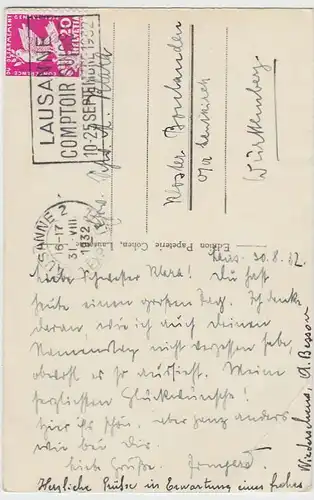 LAUSANNE
COMPTOIR SUISSE
10-25 SEPTEMBRE 1932
HELVETIA
20
LAUSANNE 2
16-17
31.VIII
1932
Kloster Bonlanden
Württemberg
Edition Papeterie Cohen, Lausanne
30.8.32.
Liebe Schwester Klara! Du hast
heute einen großen Tag. Ich denke
daran, wie ich auch deinen
Namenstag nicht vergessen habe,
obwohl es so aussieht. Meine
herzlichsten Glückwünsche!
Hier ists schön, aber ganz anders
wie bei Dir.
Liebe Grüße. Irmgard
Herzliche Grüße in Erwartung eines frohen
Wiedersehens, A. Besson